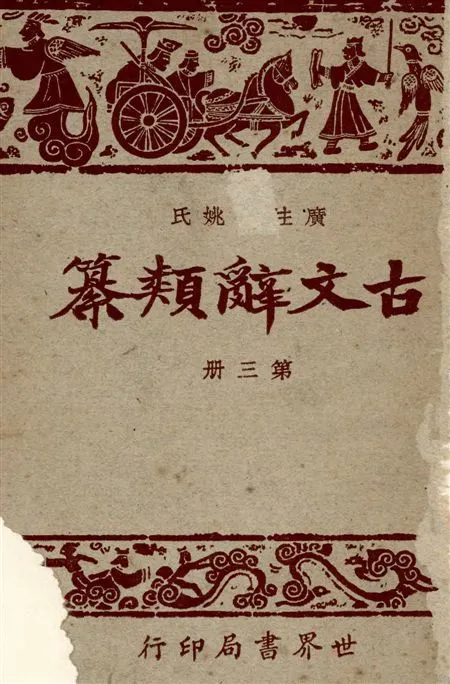 廣 姚氏
古文辭類纂
第三册
世界書局印行